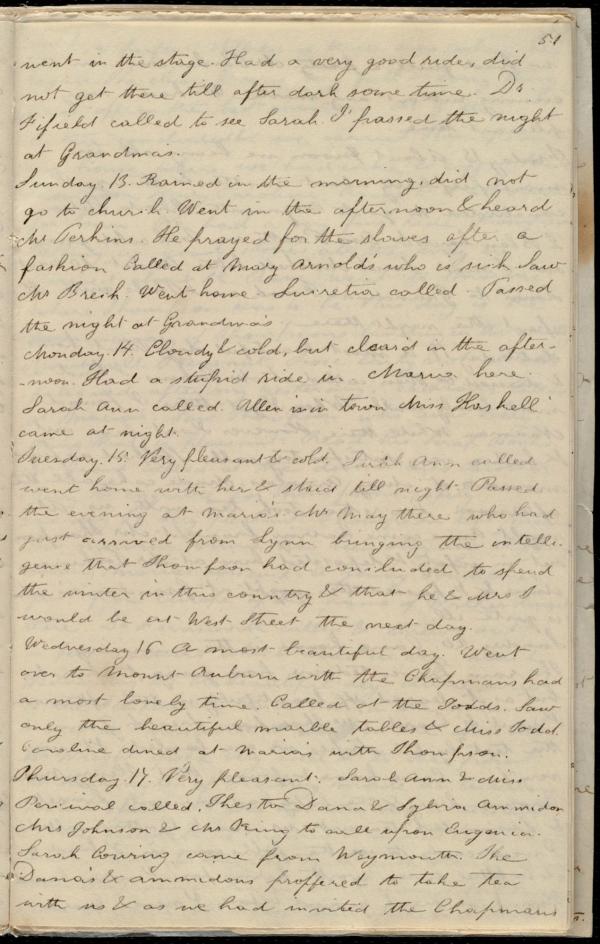 51
went in the stage. Had a very good ride, did
not get there till after dark some time. Dr.
Fifield called to see Sarah. I passed the night
at Grandma's.
Sunday. 13. Rained in the morning, did not
go to church. Went in the afternoon & heard
Mr Perkins. He prayed for the slaves after a
fashion. Called at Mary Arnold's who is sick. Saw
Mr Breck. Went home. Lucretia called. Passed
the night at Grandma's
Monday. 14. Cloudy & cold, but clear'd in the after-
-noon. Had a stupid ride in. Maria here.
Sarah Ann called. Allen is in town Miss Haskell
came at night.
Tuesday. 15. Very pleasant & cold. Sarah Ann called
went home with her & staid till night. Passed
the evening at Maria's. Mr May there who had
just arrived from Lynn bringing the intelli-
gence that Thompson had concluded to spend
the winter in this country & that he & Mrs T
would be at West Street the next day.
Wednesday 16 A most beautiful day. Went
over to Mount Auburn with the Chapmans had
a most lovely time. Called at the Todds. Saw
only the beautiful marble tables & Miss Todd.
Caroline dined at Maria's with Thompson.
Thursday. 17. Very pleasant. Sarah Ann & Miss
Percival called, Dana & Sylvia Ammidon
Mrs Johnson & Mr King to call upon Eugenia.
Sarah Cowing came from Weymouth. The
Dana's & Ammidons proffered to take tea
with us & as we had invited the Chapmans